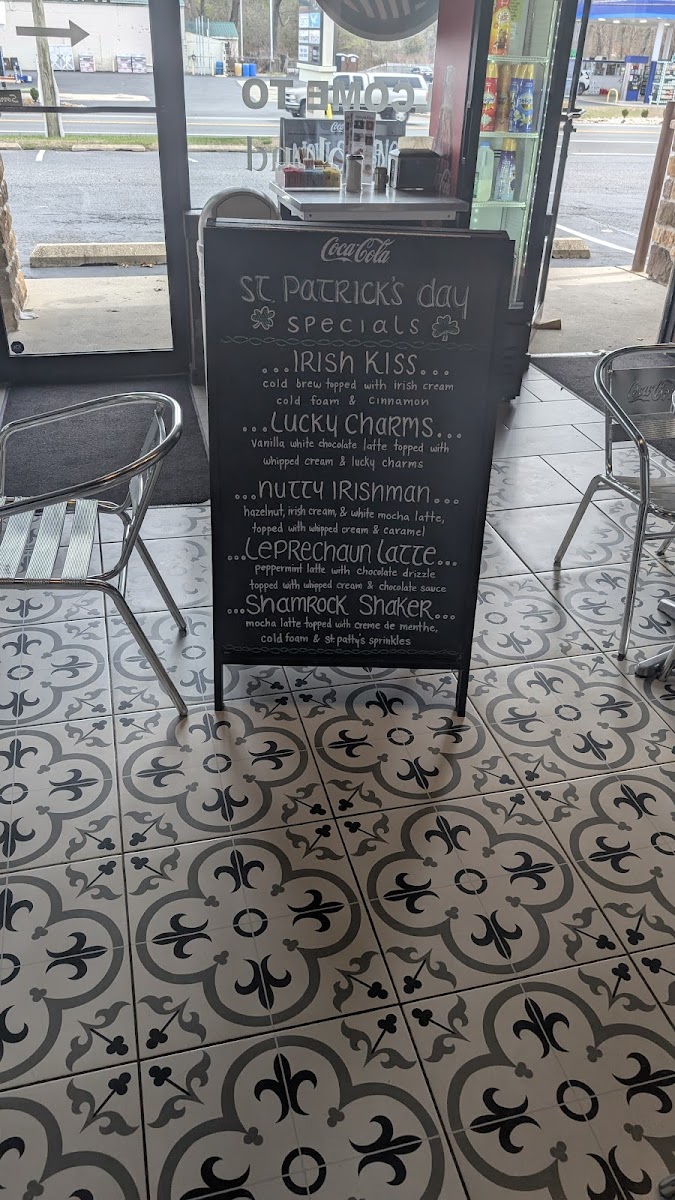 COME TO
Coca-Cola
Coca-Cola
ST. PATRICK'S day
specials
...IRISH KISS...
cold brew topped with irish cream
cold foam & cinnamon
...LUCKY CHARMS...
vanilla white chocolate latte topped with
whipped cream & lucky charms
...NUTTY IRISHMAN...
hazelnut, irish cream, & white mocha latte,
topped with whipped cream & caramel
...LEPRECHAUN LATTE...
peppermint latte with chocolate drizzle
topped with whipped cream & chocolate sauce
...SHAMROCK SHAKER...
mocha latte topped with creme de menthe,
cold foam & st. patty's sprinkles
Coca-Cola